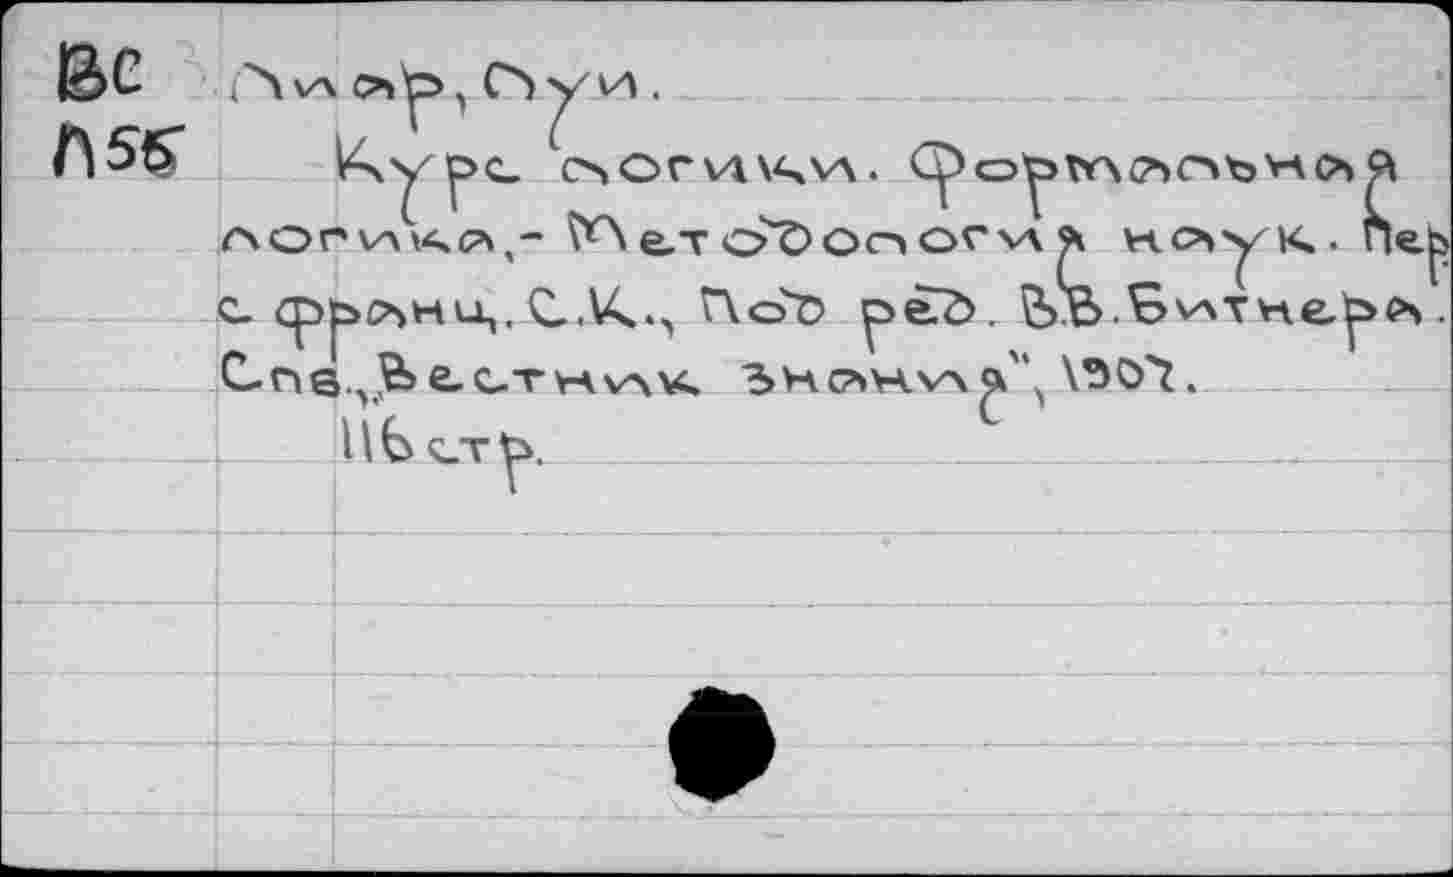 ВС Лиар, Луи.
Л55 Курс логики. Формальная
логика,- Методология наук. Пер
с франц. С.К., Под ред. В.В.Битнера.
Спб.,„Вестник Знания", 1902.
116 стр.